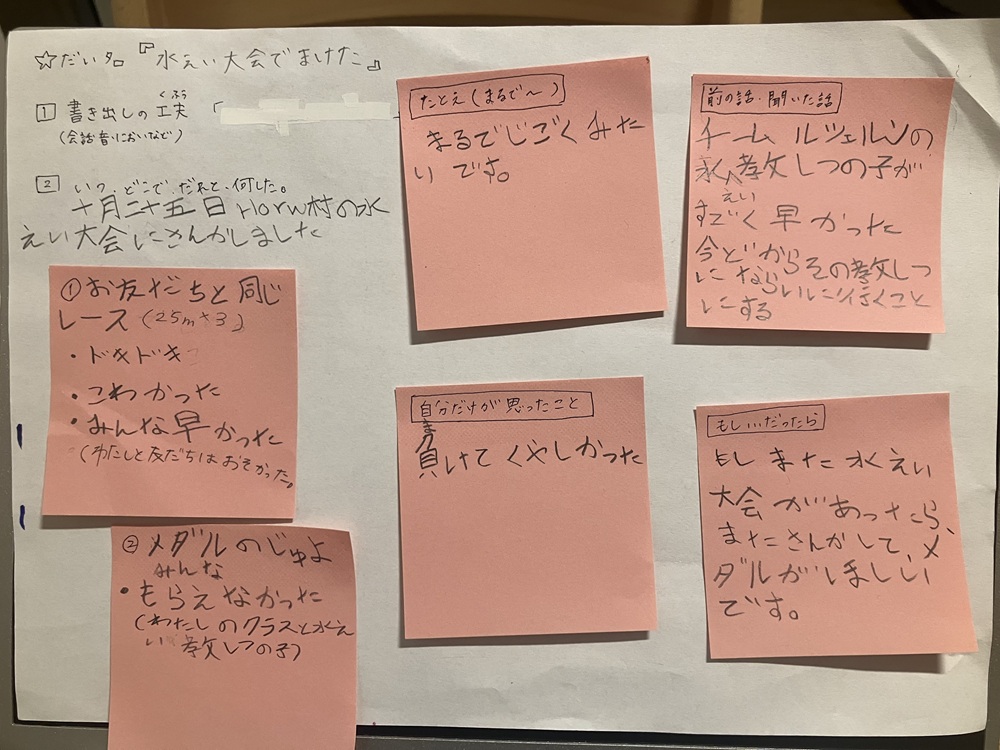 ☆だい名『水えい大会でまけた』
1 書き出しの工夫「
くふう
(会話・音・においなど)
2 いつ、どこで、だれと、何した。
十月二十五日Horw村の水
えい大会にさんかしました
①お友だちと同じ
レース(25m×3)
・ドキドキ
・こわかった
・みんな早かった
(わたしと友だちはおそかった)
②メダルのじゅよ
みんな
・もらえなかった
(わたしのクラスと水え
い教しつの子)
たとえ(まるで〜)
まるでじごくみた
いです。
自分だけが思ったこと
ま
負けてくやしかった
前の話・聞いた話
チームルツェルンの
水教しつの子が
えい
すごく早かった
今どからその教しつ
にならいに行くこと
にする
もし…だったら
もしまた水えい
大会があったら、
またさんかして、メ
ダルがほしい
です。